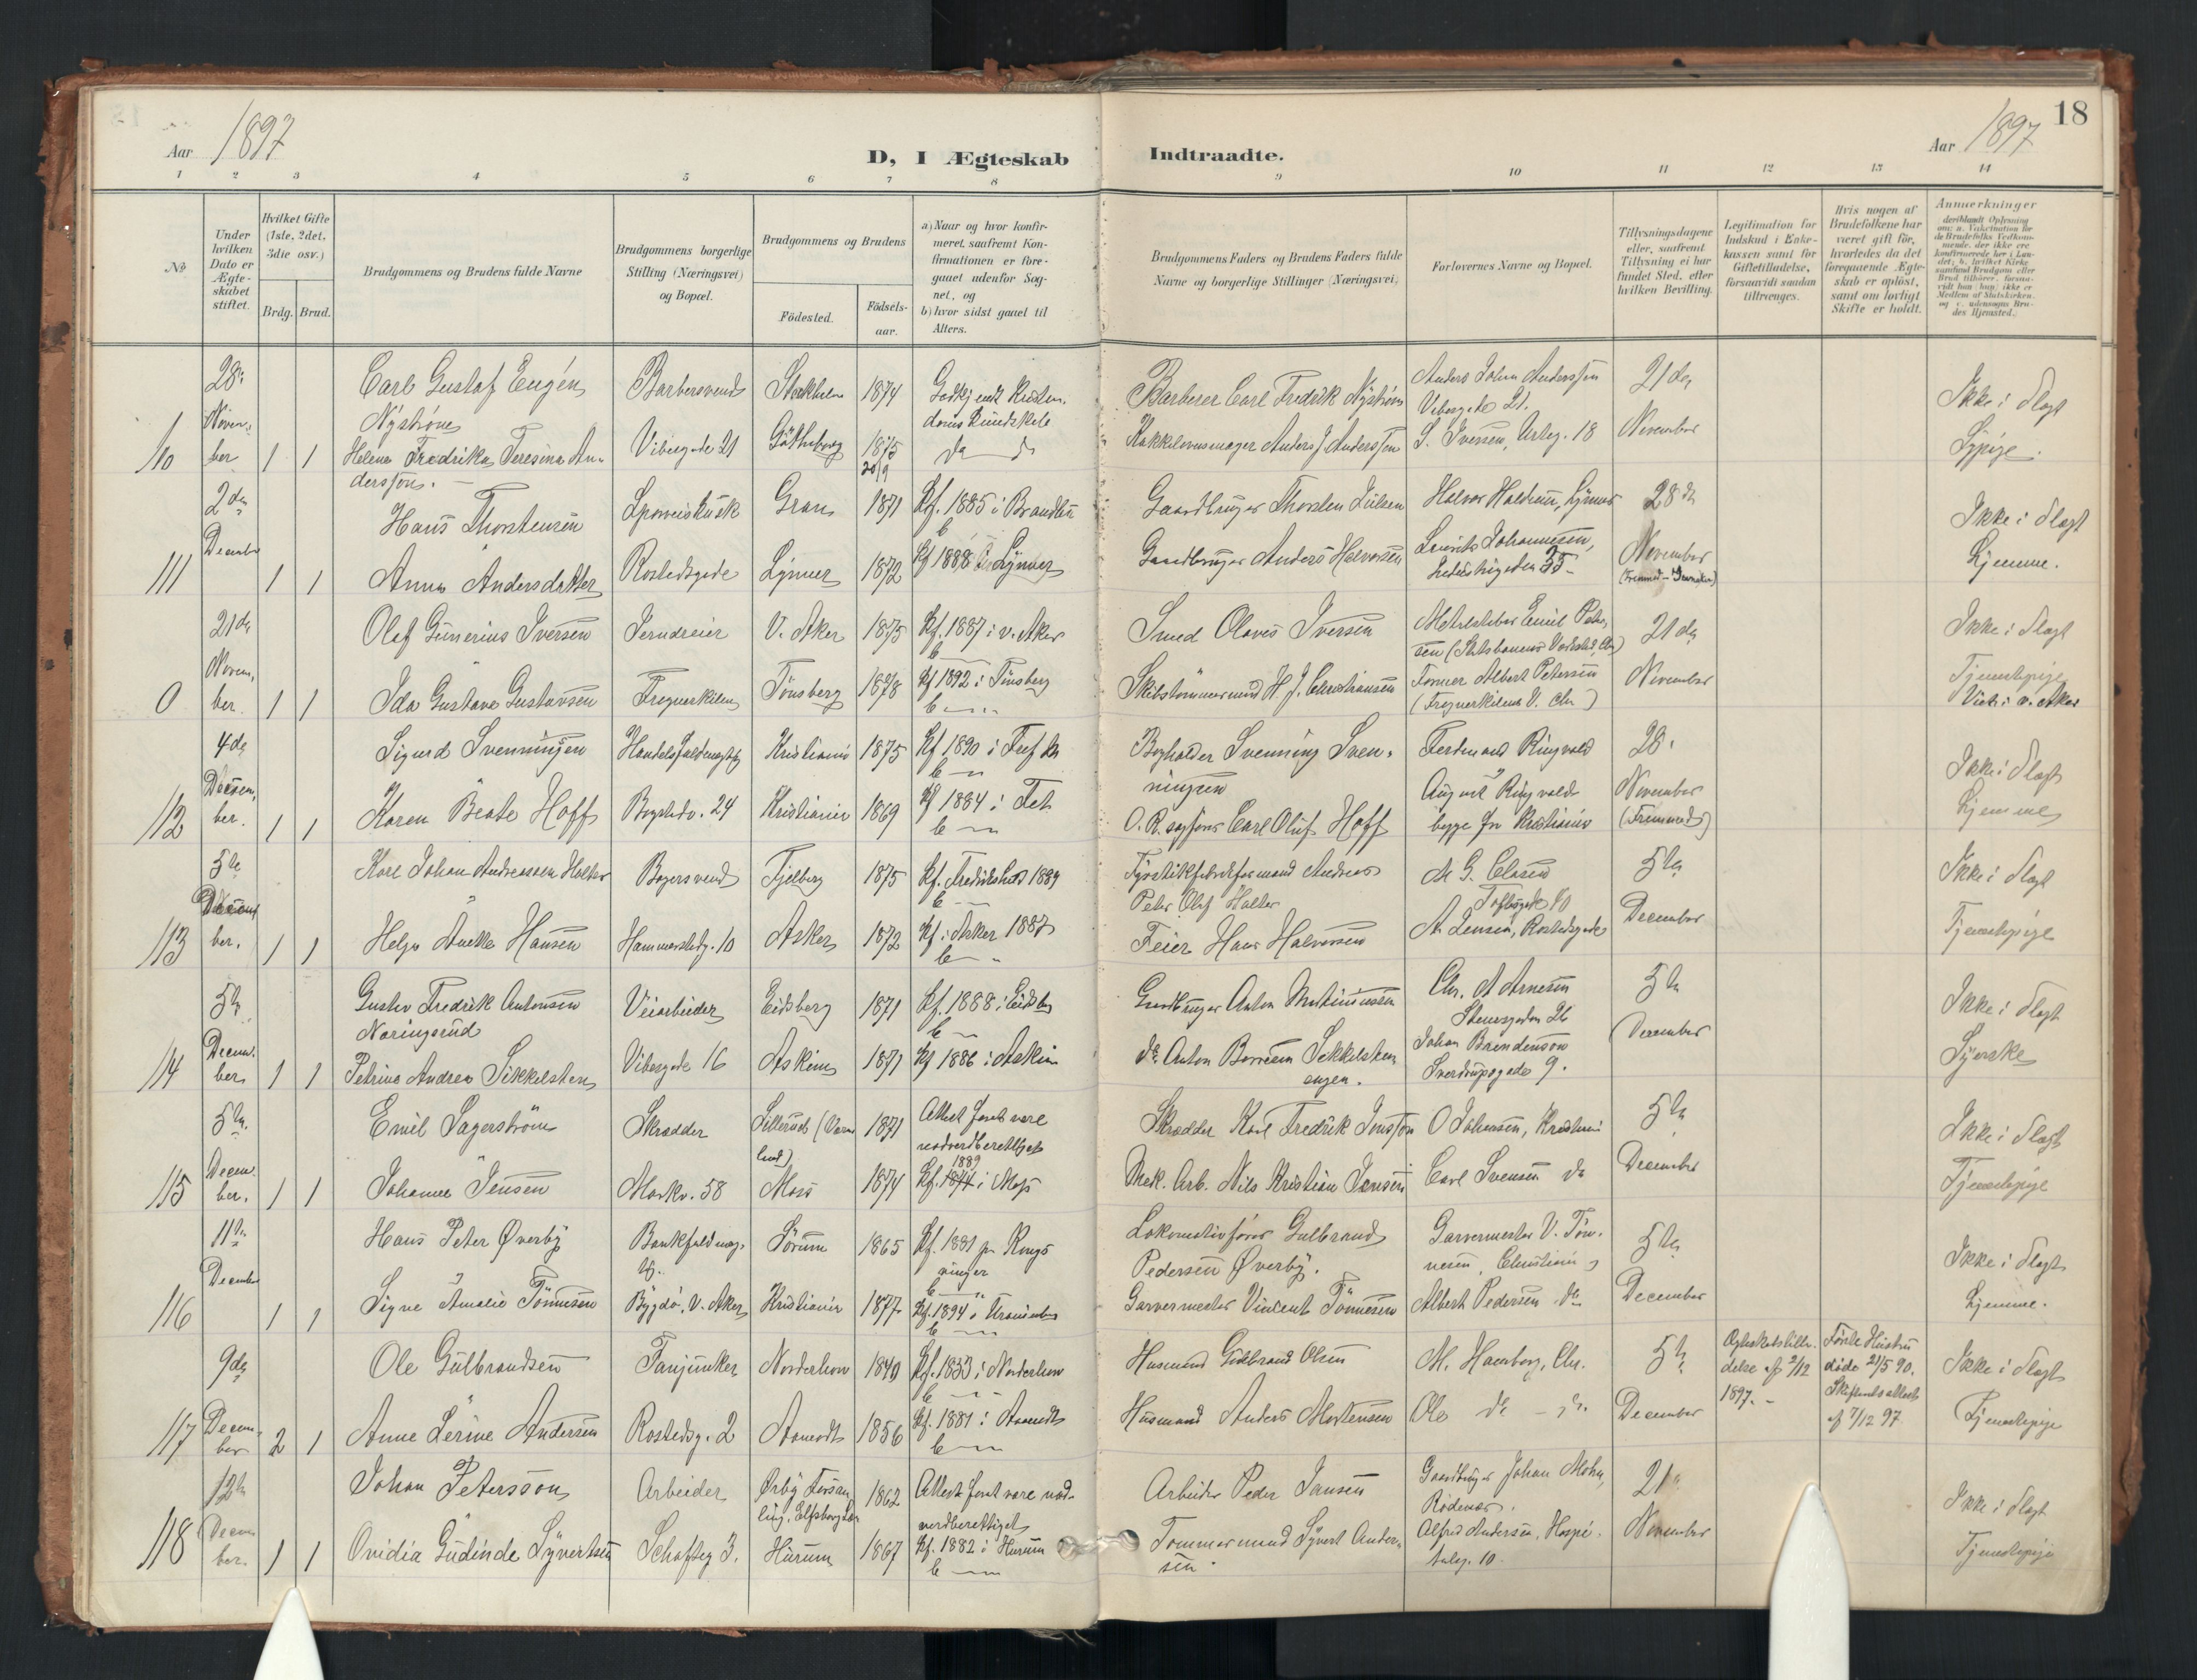 Aar 1897
D, I Ægteskab Indtraadte.
Aar 1897
18
1 2 3 4 5 6 7 8 9 10 11 12 13 14
No
Under hvilken Dato er Ægteskabet stiftet.
Hvilket Gifte (1ste, 2det, 3die osv.)
Brdg. Brud.
Brudgommens og Brudens fulde Navne
Brudgommens borgerlige Stilling (Næringsvei) og Bopæl.
Brudgommens og Brudens
Födested.
Födselsaar.
a) Naar og hvor konfirmeret, saafremt Konfirmationen er foregaaet udenfor Sognet, og
b) hvor sidst gaaet til Alters.
Brudgommens Faders og Brudens Faders fulde Navne og borgerlige Stillinger (Næringsvei)
Forlovernes Navne og Bopæl.
Tillysningsdagene eller, saafremt Tillysning ei har fundet Sted, efter hvilken Bevilling.
Legitimation for Indskud i Enkekassen samt for Giftetilladelse, forsaavidt saadan tiltrænges.
Hvis nogen af Brudefolkene har været gift för, hvorledes da det foregaaende Ægteskab er oplöst, samt om lovligt Skifte er holdt.
Anmærkninger
110
28. November
1 1
Carl Gustaf Eugén Nyström
Barbersvend
Stockholm
1874
Godkjendt Kristendomskundskab
Barberer Carl Fredrik Nyström
Anders Johan Anderssen
Vibesgade 21.
21de November
Ikke i Slegt
Helena Fredrika Teresina Anderssons.
Vibesgade 21
Götheborg
1875
20/9
do do
Kakkelovnsmager Anders J. Anderssen
S. Iversen, 18
Sypige.
111
2den December
1 1
Hans Thorstensen
Sporveiskusk
Gran
1871
Kf. 1885 i Brandbu
Gaardbruger Thorsten Julisen
28de November
Ikke i Slegt
Anna Andersdatter
Rostedsgade
Lynner
1872
Kf 1888 i Lynner
Gaardbruger Anders Halvorsen
Laurits Johannesen,
35
Hjemme.
0
21de November
1 1
Olaf Gunerius Iversen
Jerndreier
V. Aker
1875
Kf. 1887 i v. Aker
Smed Olaves Iversen
Metalstøber Emil Petersen
21de November
Ikke i Slegt
Ida Gustava Gustavsen
Frognerkilen
Tønsberg
1878
Kf 1892 i Tønsberg
Skibstømmermand H. J. Christiansen
Former Albert Petersen
(Frognerkilens V. Chr)
Tjenestepige
Viet i v. Aker
112
4de December
1 1
Sigurd Svenningsen
Handelsfuldmægtig
Kristiania
1875
Kf 1890 i
Bogholder Svenning Svenningsen
Ferdinand Ringvold
28. November
(Fremmeds)
Ikke i Slegt
Karen Beate Hoff
Bogstadv. 24
Kristiania
1869
Kf 1884 i Fet
O. R. sagfører Carl Oluf Hoff
August Ringvold
begge fra Kristiania
Hjemme
113
5te December
1 1
Karl Johan Andreassen Holter
Bagersvend
Fjelberg
1875
Kf. Fredrikstad 1889
Fyrstikfabrikformand Andreas Peter Olaf Holter
M G. Clasen
Toftesgade 40
5te December
Ikke i Slegt
Helga Anette Hansen
Hammerstadg. 10
Asker
1872
Kf. i Asker 1887
Feier Hans Halvorsen
A. Jensen, Rostedsgade
Tjenestepige
114
5te December
1 1
Gustav Fredrik Antonsen Næringsrud
Veiarbeider
Eidsberg
1871
Kf. 1888 i Eidsberg
Gaardbruger Anton Martiniussen
Chr. A Arnesen
Stenersgaden 26
5te December
Ikke i Slegt
Petrine Andrea Sikkelsten
Vibesgade 16
Askim
1871
Kf 1886 i Askim
do Anton Borresen Sekkelstenengen.
Johan Brendenson
Sverdrupsgade 9.
Syerske
115
5te December
1 1
Emil Lagerström
Skrædder
Silleruds (Värmland)
1871
Attest for at være nadverdberettiget
Skrædder Karl Fredrik Jonsson
O Johansen, Kristiania
5te December
Ikke i Slegt
Johanne Jensen
Markv. 58
Moss
1874
Kf. 1889 i Moss
Mek. Arb. Nils Kristian Jensen
Carl Svensen do
Tjenestepige
116
11te December
1 1
Hans Peter Øverby
Bankfuldmægtig.
Sørum
1865
Kf. 1881 pr Kongsvinger
Lokomotivfører Gulbrand Pedersen Øverby.
Garvermester V. Tønnesen, Christiania
5te December
Ikke i Slegt
Signe Amalie Tönnesen
Bygdø, V. Aker
Kristiania
1877
Kf. 1894 i Uranienborg
Garvermester Vincent Tönnesen
Albert Pedersen do
Hjemme.
117
9de December
2 1
Ole Gulbrandsen
Tanjunker
Norderhov
1840
Kf. 1833 i Norderhov
Husmand Gulbrand Olsen
M. Haverborg, Chr.
5te December
Ægteskabstilladelse af 2/12 1897.
Første Hustru døde 21/5 90. Skifteretsattest af 7/12 97
Ikke i Slegt
Anne Lerine Andersen
Rostedsg. 2
Aamodt
1856
Kf. 1881 i Aamodt
Husmand Anders Mortensen
Ole do - do
Tjenestepige
118
12te December
1 1
Johan Petersson
Arbeider
Ørby
1862
Attest for at være nadverdberettiget
Arbeider Peder Jansen
Gaardbruger Johan Mohn, Rødenæs.
21. November
Ikke i Slegt
Ovidia Gudinde Syvertsen
Schafteg 3.
Hurum
1867
Kf. 1882 i Hurum
Tommermand Syvert Andersen
Alfred Andersen, Hospitalsg. 10.
Tjenestepige